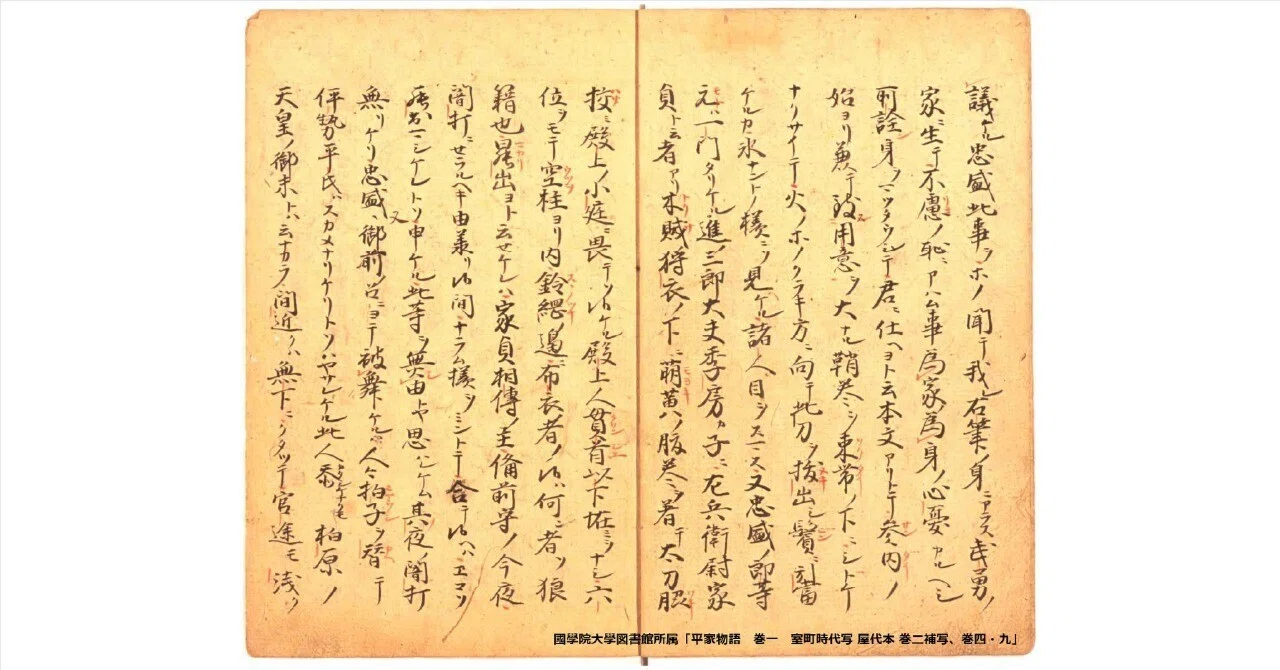 議ケル忠盛此事ヲホノ聞テ我レ右筆ノ身ニアラス武勇ノ
家ニ生テ不慮ノ恥ニアハム事為家為身ノ心憂カルヘシ
所詮身ヲマツタウシテ君ニ仕ヘヨト云本文アリトテ参内ノ
始ヨリ兼テ致用意ヲ大ナル鞘巻ヲ束帯ノ下ニシトケ
ナリサイテ火ノホノクラキ方ニ向テ此刀ヲ抜出シ鬢ニ引當
ケルカ氷ナントノ様ニソ見ケル諸人目ヲスマス又忠盛ノ郎等
元ハ一門タリケル進三郎大夫季房カ子ニ左兵衛尉家
貞ト云者アリ木賊狩衣ノ下ニ萌黄ノ腹巻ヲ着テ太刀脇
挾ミ殿上ノ小庭ニ畏テソ候ケル殿上人貫首以下恠ミヲナシ六
位ヲモテ空柱ヨリ内鈴縄邊ニ布衣者ノ候ハ何者ソ狼
籍也罷出ヨト云セケレハ家貞相傳ノ主備前守ノ今夜
闇打ニセラルヘキ由承リ候間ナラム様ヲミントテ合テ候ヘハエコソ
罷出マシケレトソ申ケル此等ヲ無由トヤ思ハレケム其夜ノ闇打
無リケリ忠盛又御前ノ召ニヨテ被舞ケルニ人々拍子ヲ替テ
伊勢平氏ハスカメナリケリトソハヤサレケル此人忝柏原ノ
天皇ノ御末トハ云ナカラ間近クハ無下ニクタツテ官途モ浅ソ
國學院大學図書館所属「平家物語　巻一　室町時代写 屋代本 巻二補写、巻四・九」